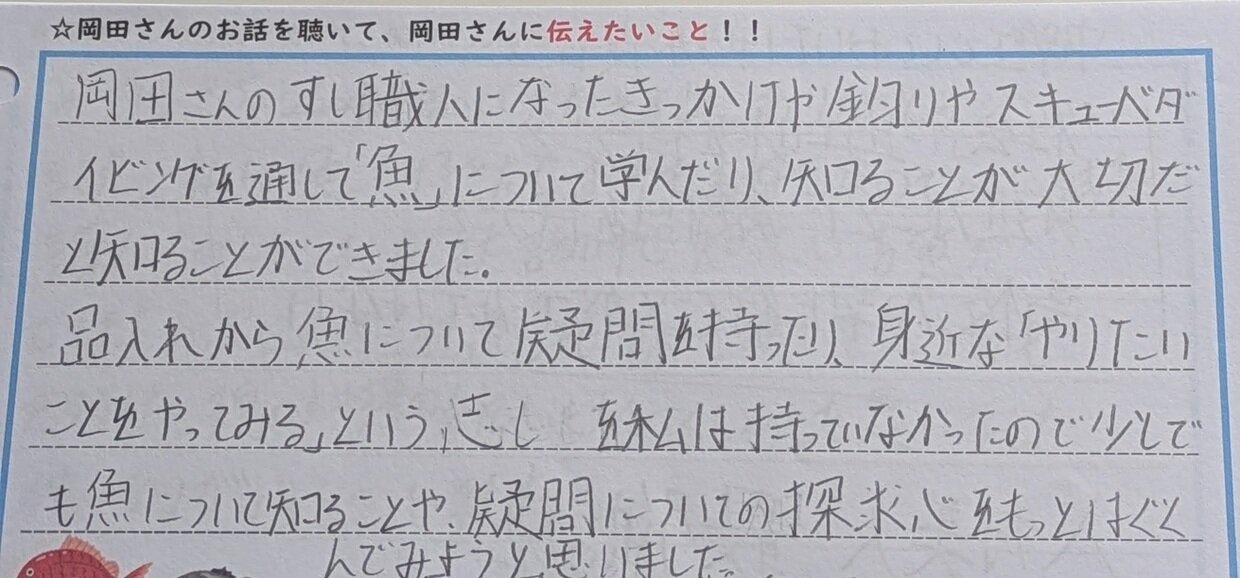 ☆岡田さんのお話を聴いて、岡田さんに伝えたいこと！！
岡田さんのすし職人になったきっかけや釣りやスキューバダ
イビングを通して「魚」について学んだり、知ることが大切だ
と知ることができました。
品入れから魚について疑問を持ったり、身近な「やりたい
ことをやってみる」という、志し を私は持っていなかったので少しで
も魚について知ることや、疑問についての探求心をもっとはぐく
んでみようと思いました。